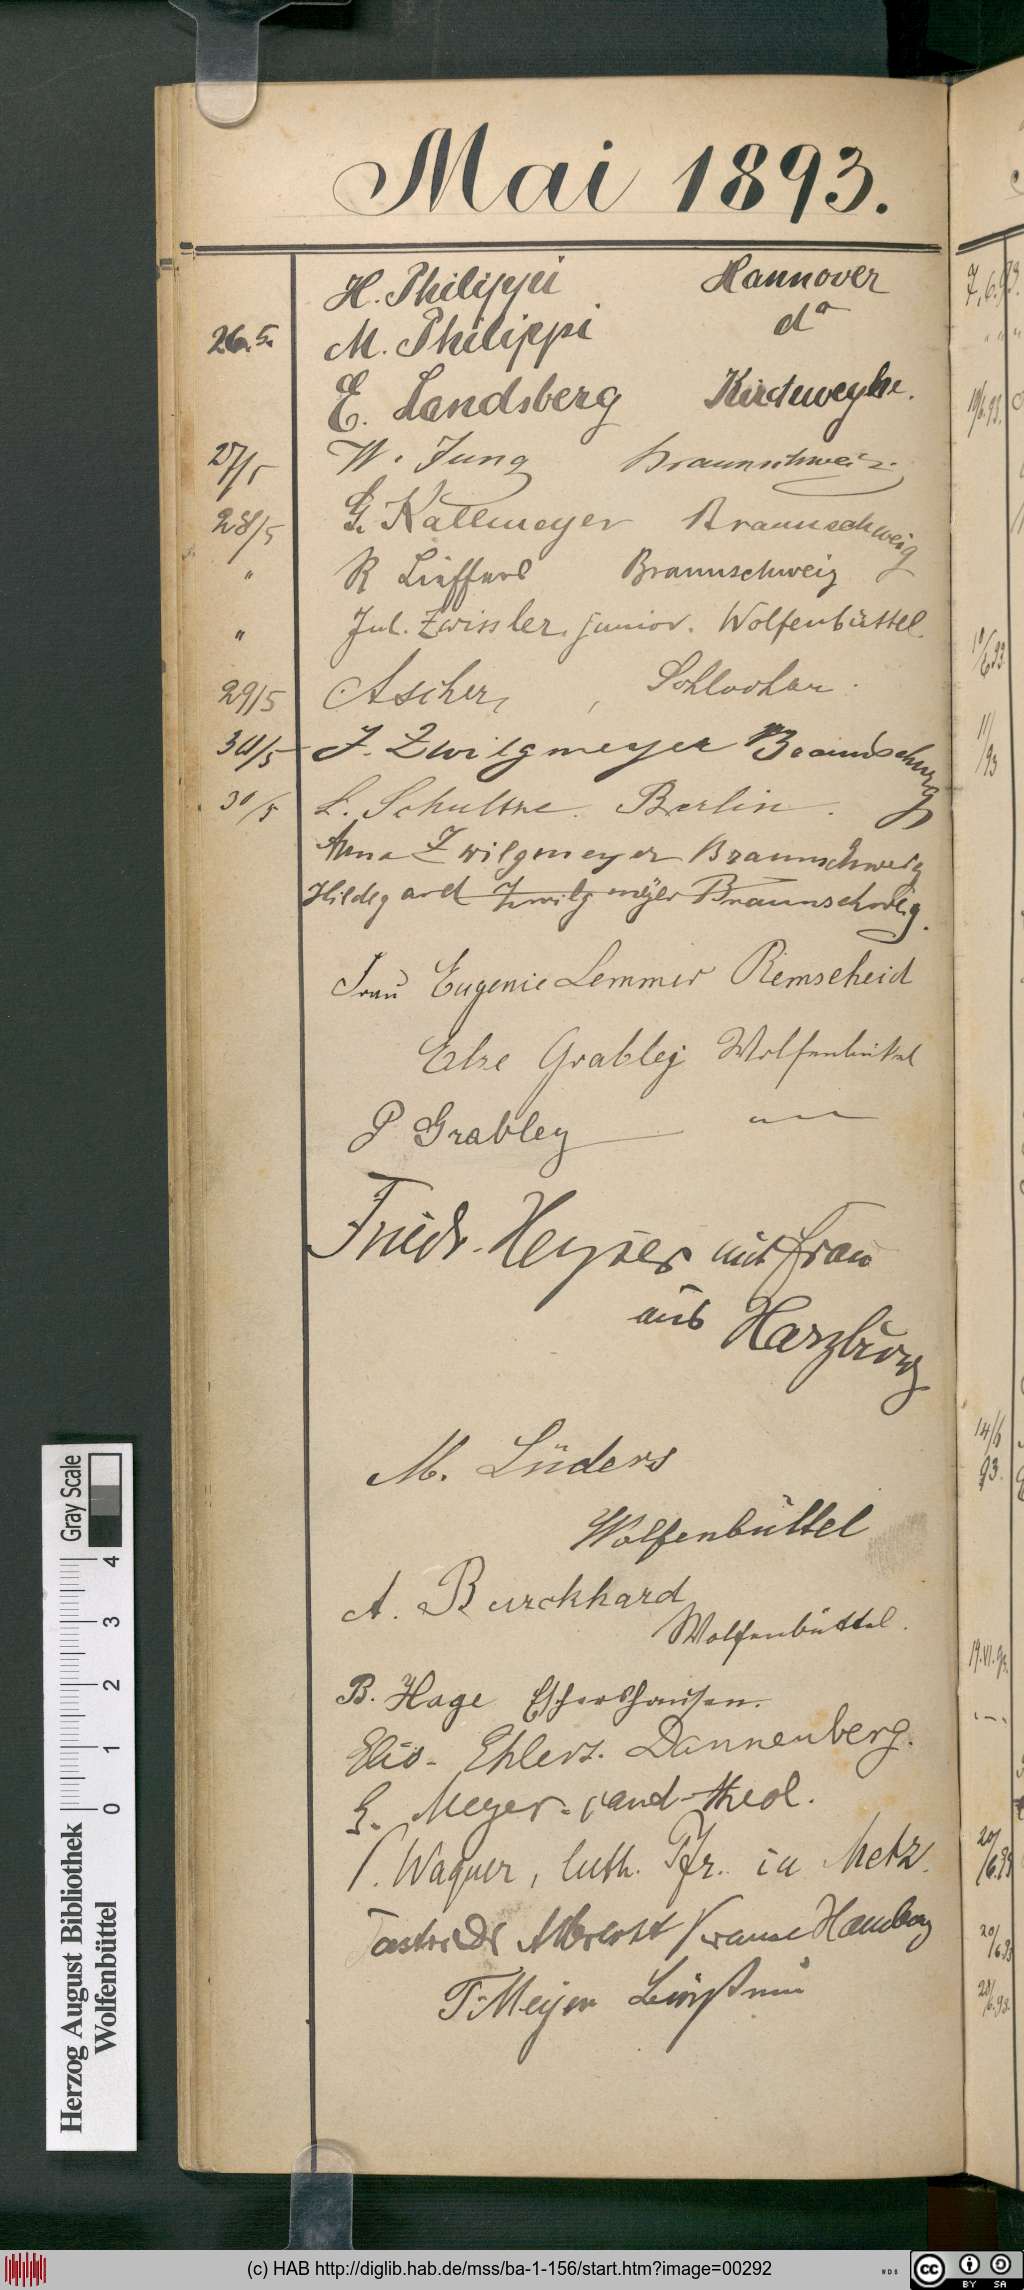 Mai 1893.
H. Philippi Hannover
26.5. M. Philippi do
E. Landsberg Kirchweyhe.
27/5 W. Jung Braunschweig.
28/5 G. Kallmeyer Braunschweig
" R Braunschweig
" Jul. Zwissler junior. Wolfenbüttel.
29/5 Ascher,
30/5 J. Zwilgmeyer Braunschweig
30/5 L. Schultze. Berlin.
Anna Zwilgmeyer Braunschweig
Hildegard Zwilgmeyer Braunschweig.
Frau Eugenie Lemmer Remscheid
Else Grabley Wolfenbüttel
P Grabley — " —
Friedr. Heyser mit Frau
aus Harzburg
M. Lüders
Wolfenbüttel
A. Burckhard
Wolfenbüttel.
B. Hage Eschershausen.
Elis. Ehlers. Dannenberg.
G. Meyer. cand. theol.
Wagner, luth. Pfr. in Metz.
Pastor Dr Albrecht Krause Hamburg
F. Meyer
7.6.93.
" "
10/6.93.
10/6 93
11/93
14/6
93.
19.VI.93.
20/6.93
20/6.93
28/6.93.
Herzog August Bibliothek
Wolfenbüttel
0 1 2 3 4
Gray Scale
(c) HAB http://diglib.hab.de/mss/ba-1-156/start.htm?image=00292
WDB
cc BY SA